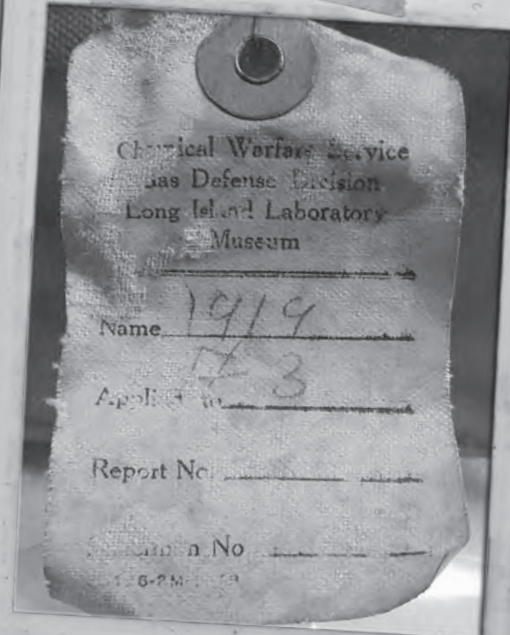 Chemical Warfare Service
Gas Defense Division
Long Island Laboratory
Museum
Name 1919
3
Applied to
Report No.
Specimen No